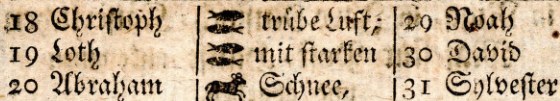 18 Chriſtoph | trübe Luft, 29 Noah
19 Loth | mit ſtarken 30 David
20 Abraham | Schnee, 31 Sylveſter